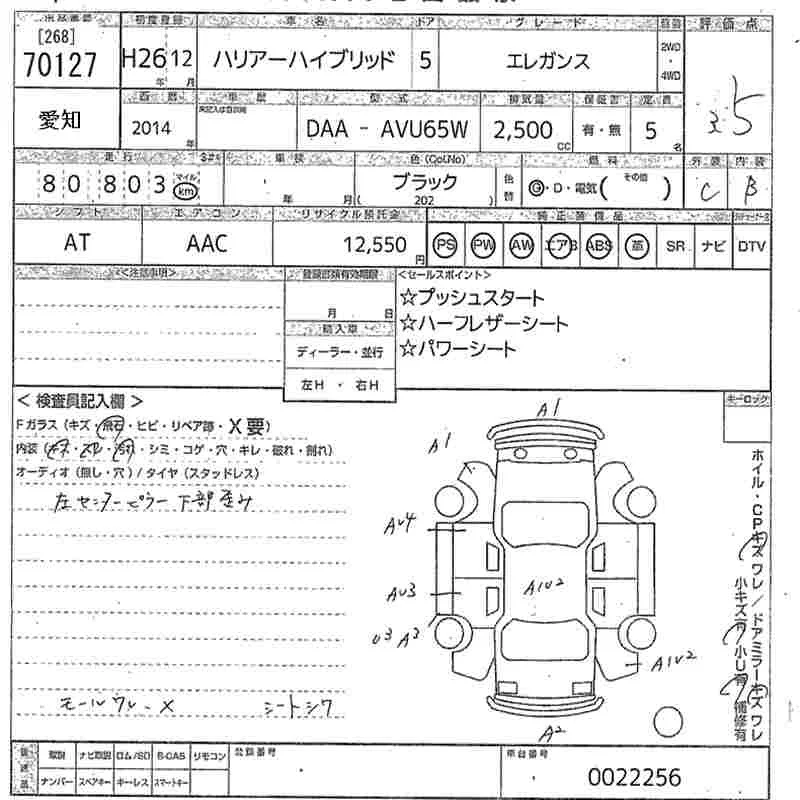 出品番号 初度登録 車名 ドア グレード 評価点
[268]
70127 H26 12 ハリアーハイブリッド 5 エレガンス 2WD・4WD
年 月
愛知 西暦 車歴 型式 排気量 保証書 定員
2014年 DAA - AVU65W 2,500cc 有・無 5名 5
走行 車検 色(Col.No) 燃料 外装 内装
80803 マイル km 年 月 ブラック (202) 色替 G・D・電気( その他 ) C B
シフト エアコン リサイクル預託金 純正装備品
AT AAC 12,550円 PS PW AW エアB ABS 革 SR ナビ DTV
<注意事項> 登録書類有効期限 <セールスポイント>
月 日 ☆プッシュスタート
輸入車 ☆ハーフレザーシート
ディーラー・並行 ☆パワーシート
左H ・ 右H
<検査員記入欄> キーロック
Fガラス(キズ・飛石・ヒビ・リペア跡・X要)
内装(キズ・スレ・汚れ・シミ・コゲ・穴・キレ・破れ・割れ)
オーディオ(無し・穴)/タイヤ(スタッドレス)
左センターピラー下部歪み
A1
A1
AU4
AU3
A1U2
U3 A3
A1U2
A2
ホイル・CPキズワレ/ドアミラーキズワレ
小キズ有 小U有 補修有
モールワレ-X シートシワ
後送品 取説 ナビ取説 ロム/SD B-CAS リモコン 登録番号 車台番号
ナンバー スペアキー キーレス スマートキー 0022256